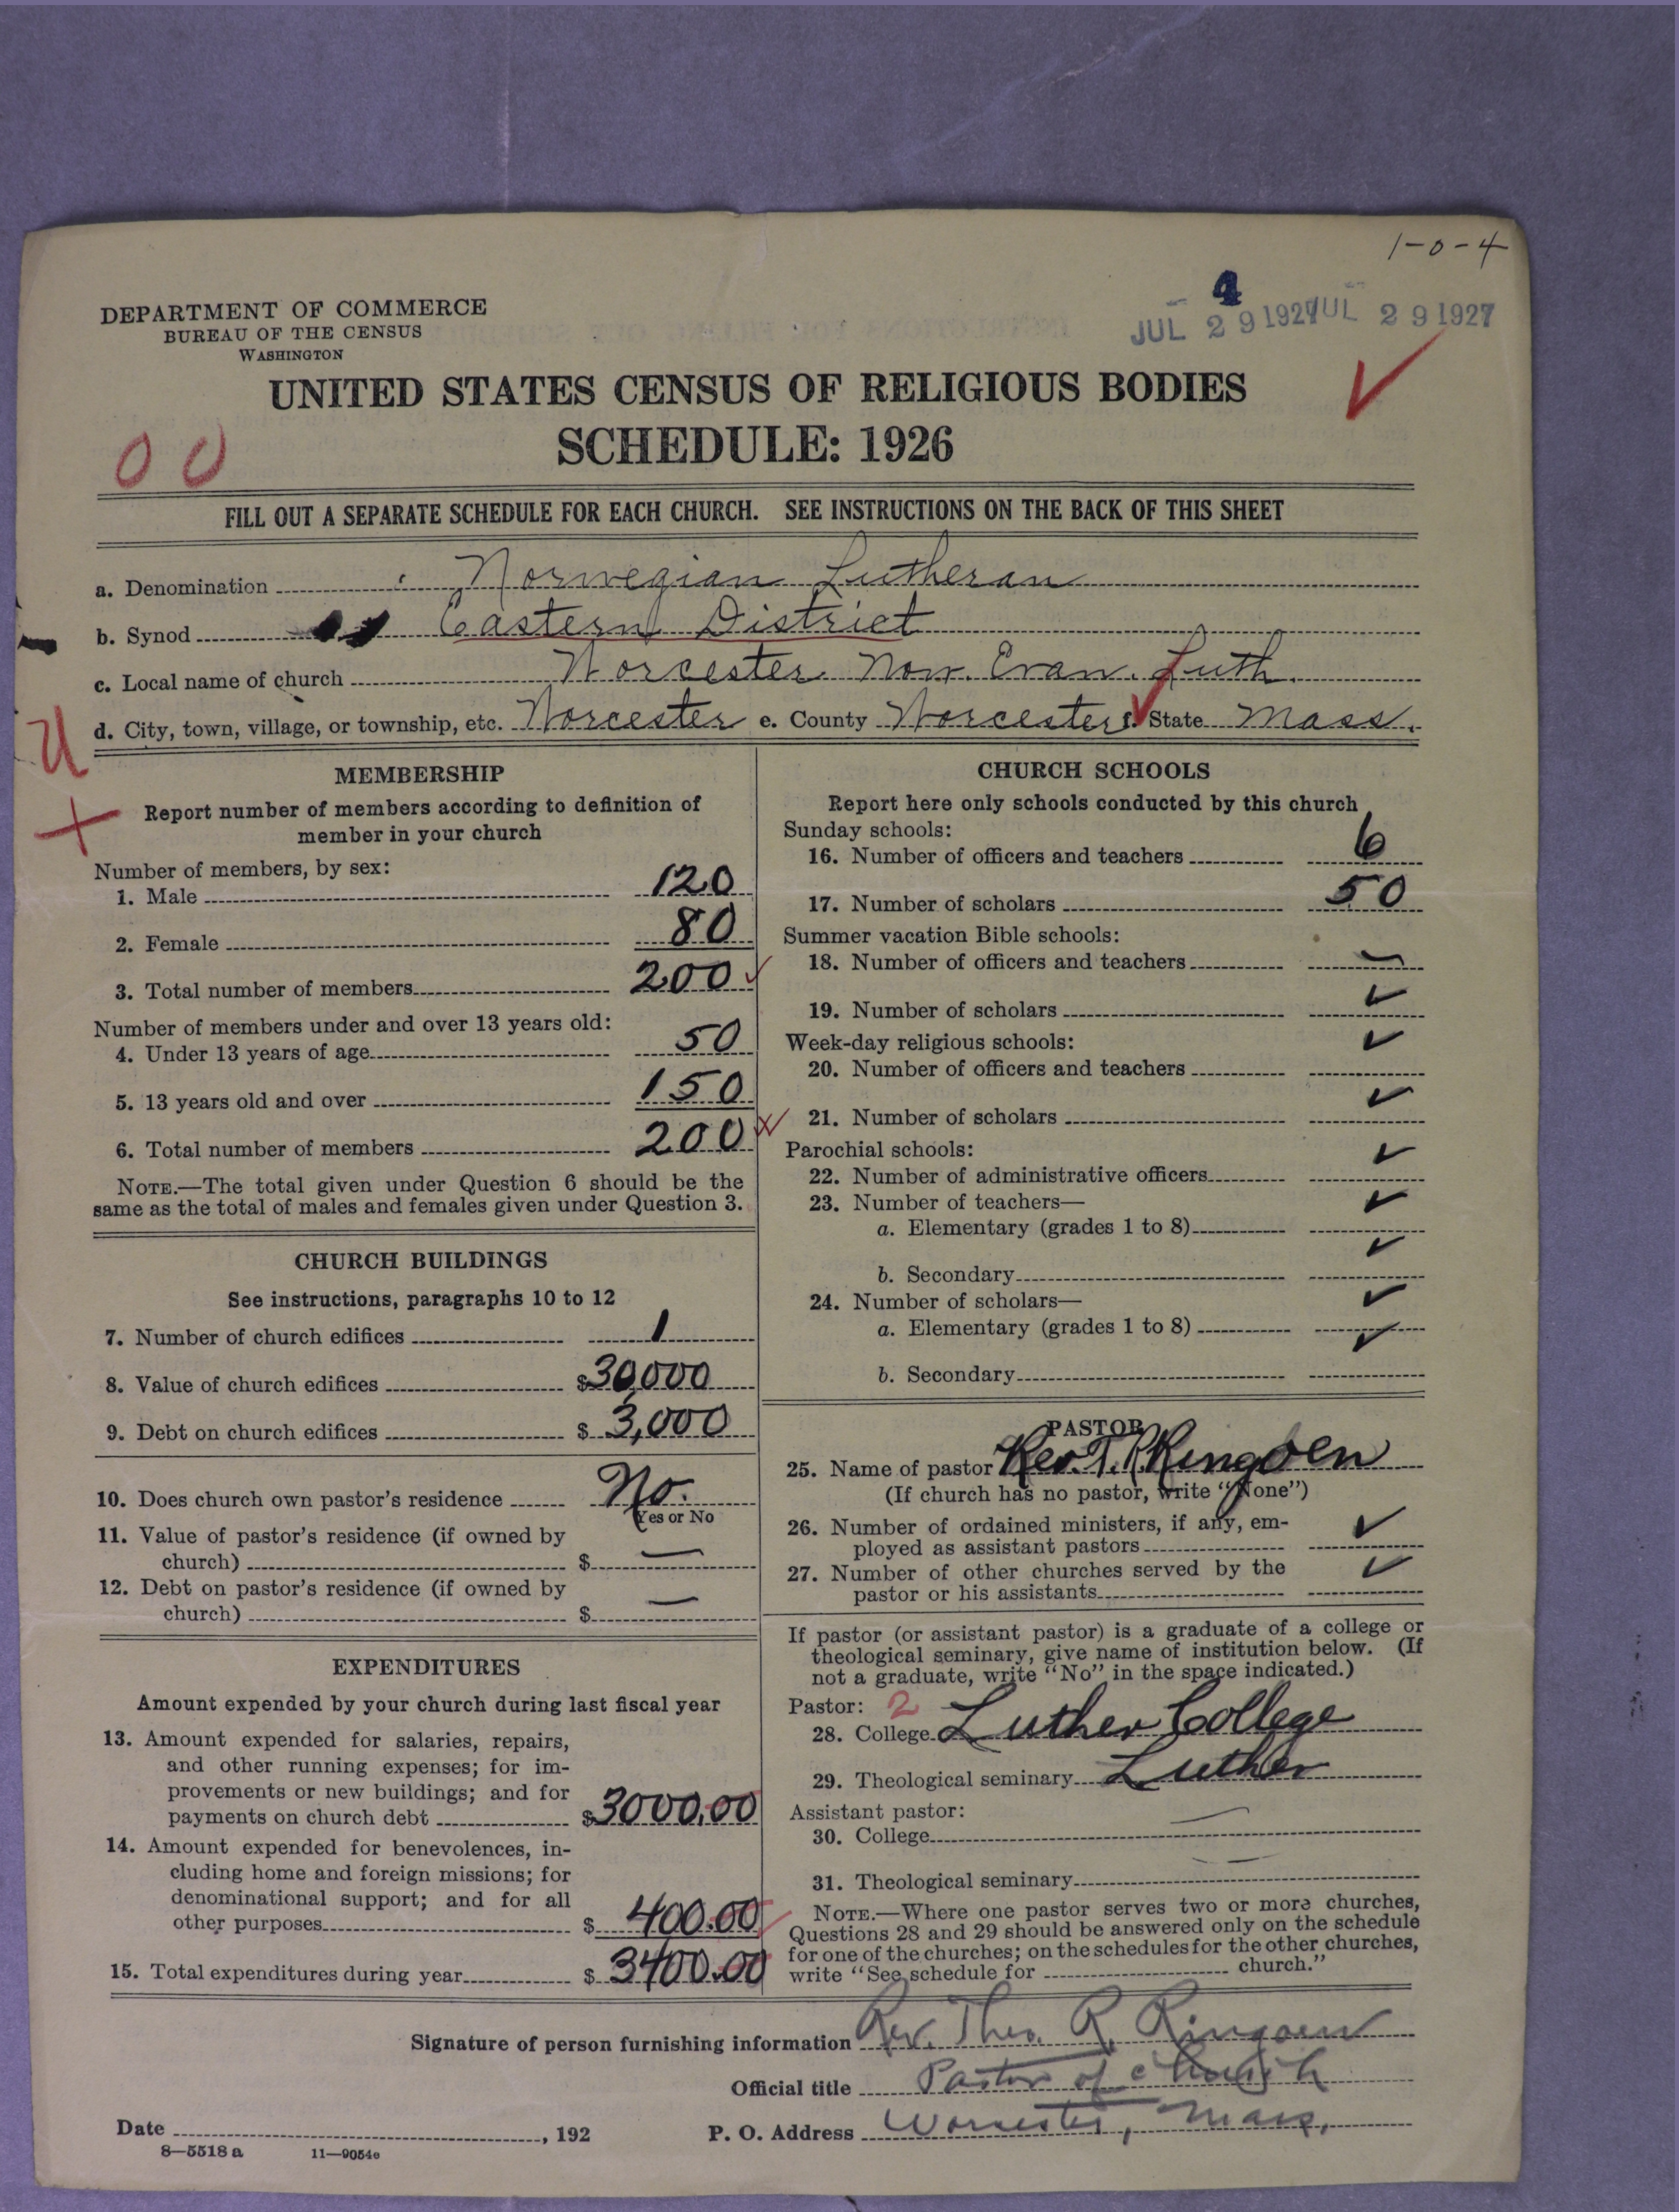 1-0-4
4
JUL 29 1927 JUL 29 1927
DEPARTMENT OF COMMERCE
BUREAU OF THE CENSUS
WASHINGTON
UNITED STATES CENSUS OF RELIGIOUS BODIES
SCHEDULE: 1926
FILL OUT A SEPARATE SCHEDULE FOR EACH CHURCH. SEE INSTRUCTIONS ON THE BACK OF THIS SHEET
a. Denomination Norwegian Lutheran
b. Synod Eastern District
c. Local name of church Worcester Nor. Evan. Luth.
d. City, town, village, or township, etc. Worcester e. County Worcester f. State Mass.
MEMBERSHIP
Report number of members according to definition of
member in your church
Number of members, by sex:
1. Male 120
2. Female 80
3. Total number of members 200
Number of members under and over 13 years old:
4. Under 13 years of age 50
5. 13 years old and over 150
6. Total number of members 200
NOTE.—The total given under Question 6 should be the
same as the total of males and females given under Question 3.
CHURCH BUILDINGS
See instructions, paragraphs 10 to 12
7. Number of church edifices 1
8. Value of church edifices $30,000
9. Debt on church edifices $3,000
10. Does church own pastor's residence No.
Yes or No
11. Value of pastor's residence (if owned by
church) $ —
12. Debt on pastor's residence (if owned by
church) $ —
EXPENDITURES
Amount expended by your church during last fiscal year
13. Amount expended for salaries, repairs,
and other running expenses; for im-
provements or new buildings; and for
payments on church debt $3000.00
14. Amount expended for benevolences, in-
cluding home and foreign missions; for
denominational support; and for all
other purposes $400.00
15. Total expenditures during year $3400.00
CHURCH SCHOOLS
Report here only schools conducted by this church
Sunday schools:
16. Number of officers and teachers 6
17. Number of scholars 50
Summer vacation Bible schools:
18. Number of officers and teachers —
19. Number of scholars ✓
Week-day religious schools:
20. Number of officers and teachers ✓
21. Number of scholars ✓
Parochial schools:
22. Number of administrative officers ✓
23. Number of teachers—
a. Elementary (grades 1 to 8) ✓
b. Secondary ✓
24. Number of scholars—
a. Elementary (grades 1 to 8) ✓
b. Secondary ✓
PASTOR
25. Name of pastor Rev. T. R. Ringoen
(If church has no pastor, write "None")
26. Number of ordained ministers, if any, em-
ployed as assistant pastors ✓
27. Number of other churches served by the
pastor or his assistants ✓
If pastor (or assistant pastor) is a graduate of a college or
theological seminary, give name of institution below. (If
not a graduate, write "No" in the space indicated.)
Pastor: 2
28. College Luther College
29. Theological seminary Luther
Assistant pastor:
30. College —
31. Theological seminary —
NOTE.—Where one pastor serves two or more churches,
Questions 28 and 29 should be answered only on the schedule
for one of the churches; on the schedules for the other churches,
write "See schedule for church."
Signature of person furnishing information Rev. Theo. R. Ringoen
Official title Pastor of church
Date , 192 P. O. Address Worcester, Mass,
8—5518 a 11—9054e